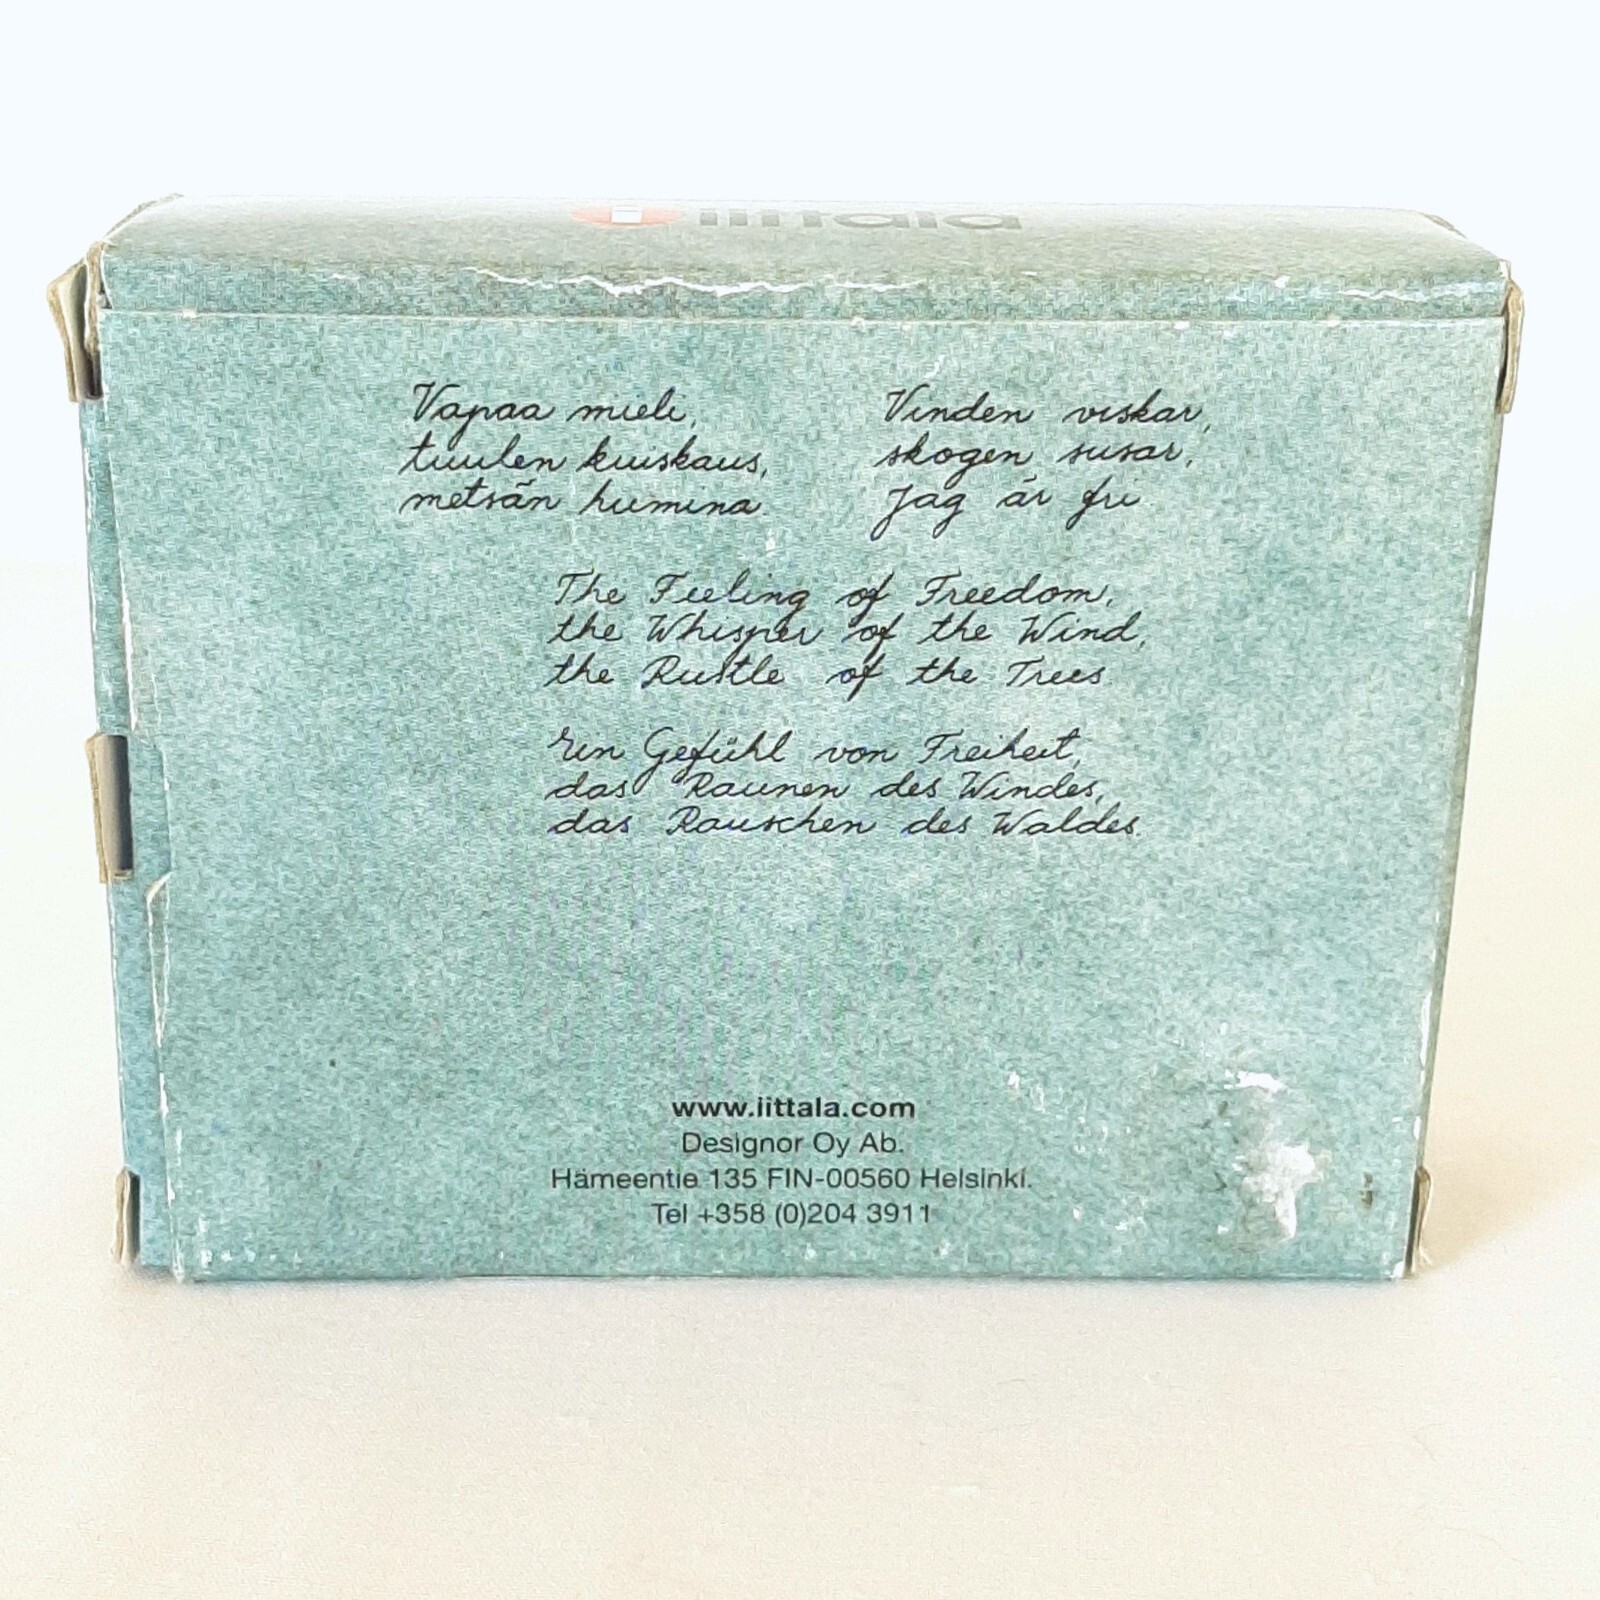 i iittala
Vapaa mieli,
tuulen kuiskaus,
metsän humina
Vinden viskar,
skogen susar,
Jag är fri
The Feeling of Freedom,
the Whisper of the Wind,
the Rustle of the Trees.
Ein Gefühl von Freiheit,
das Raunen des Windes,
das Rauschen des Waldes.
www.iittala.com
Designor Oy Ab.
Hämeentie 135 FIN-00560 Helsinki.
Tel +358 (0)204 3911